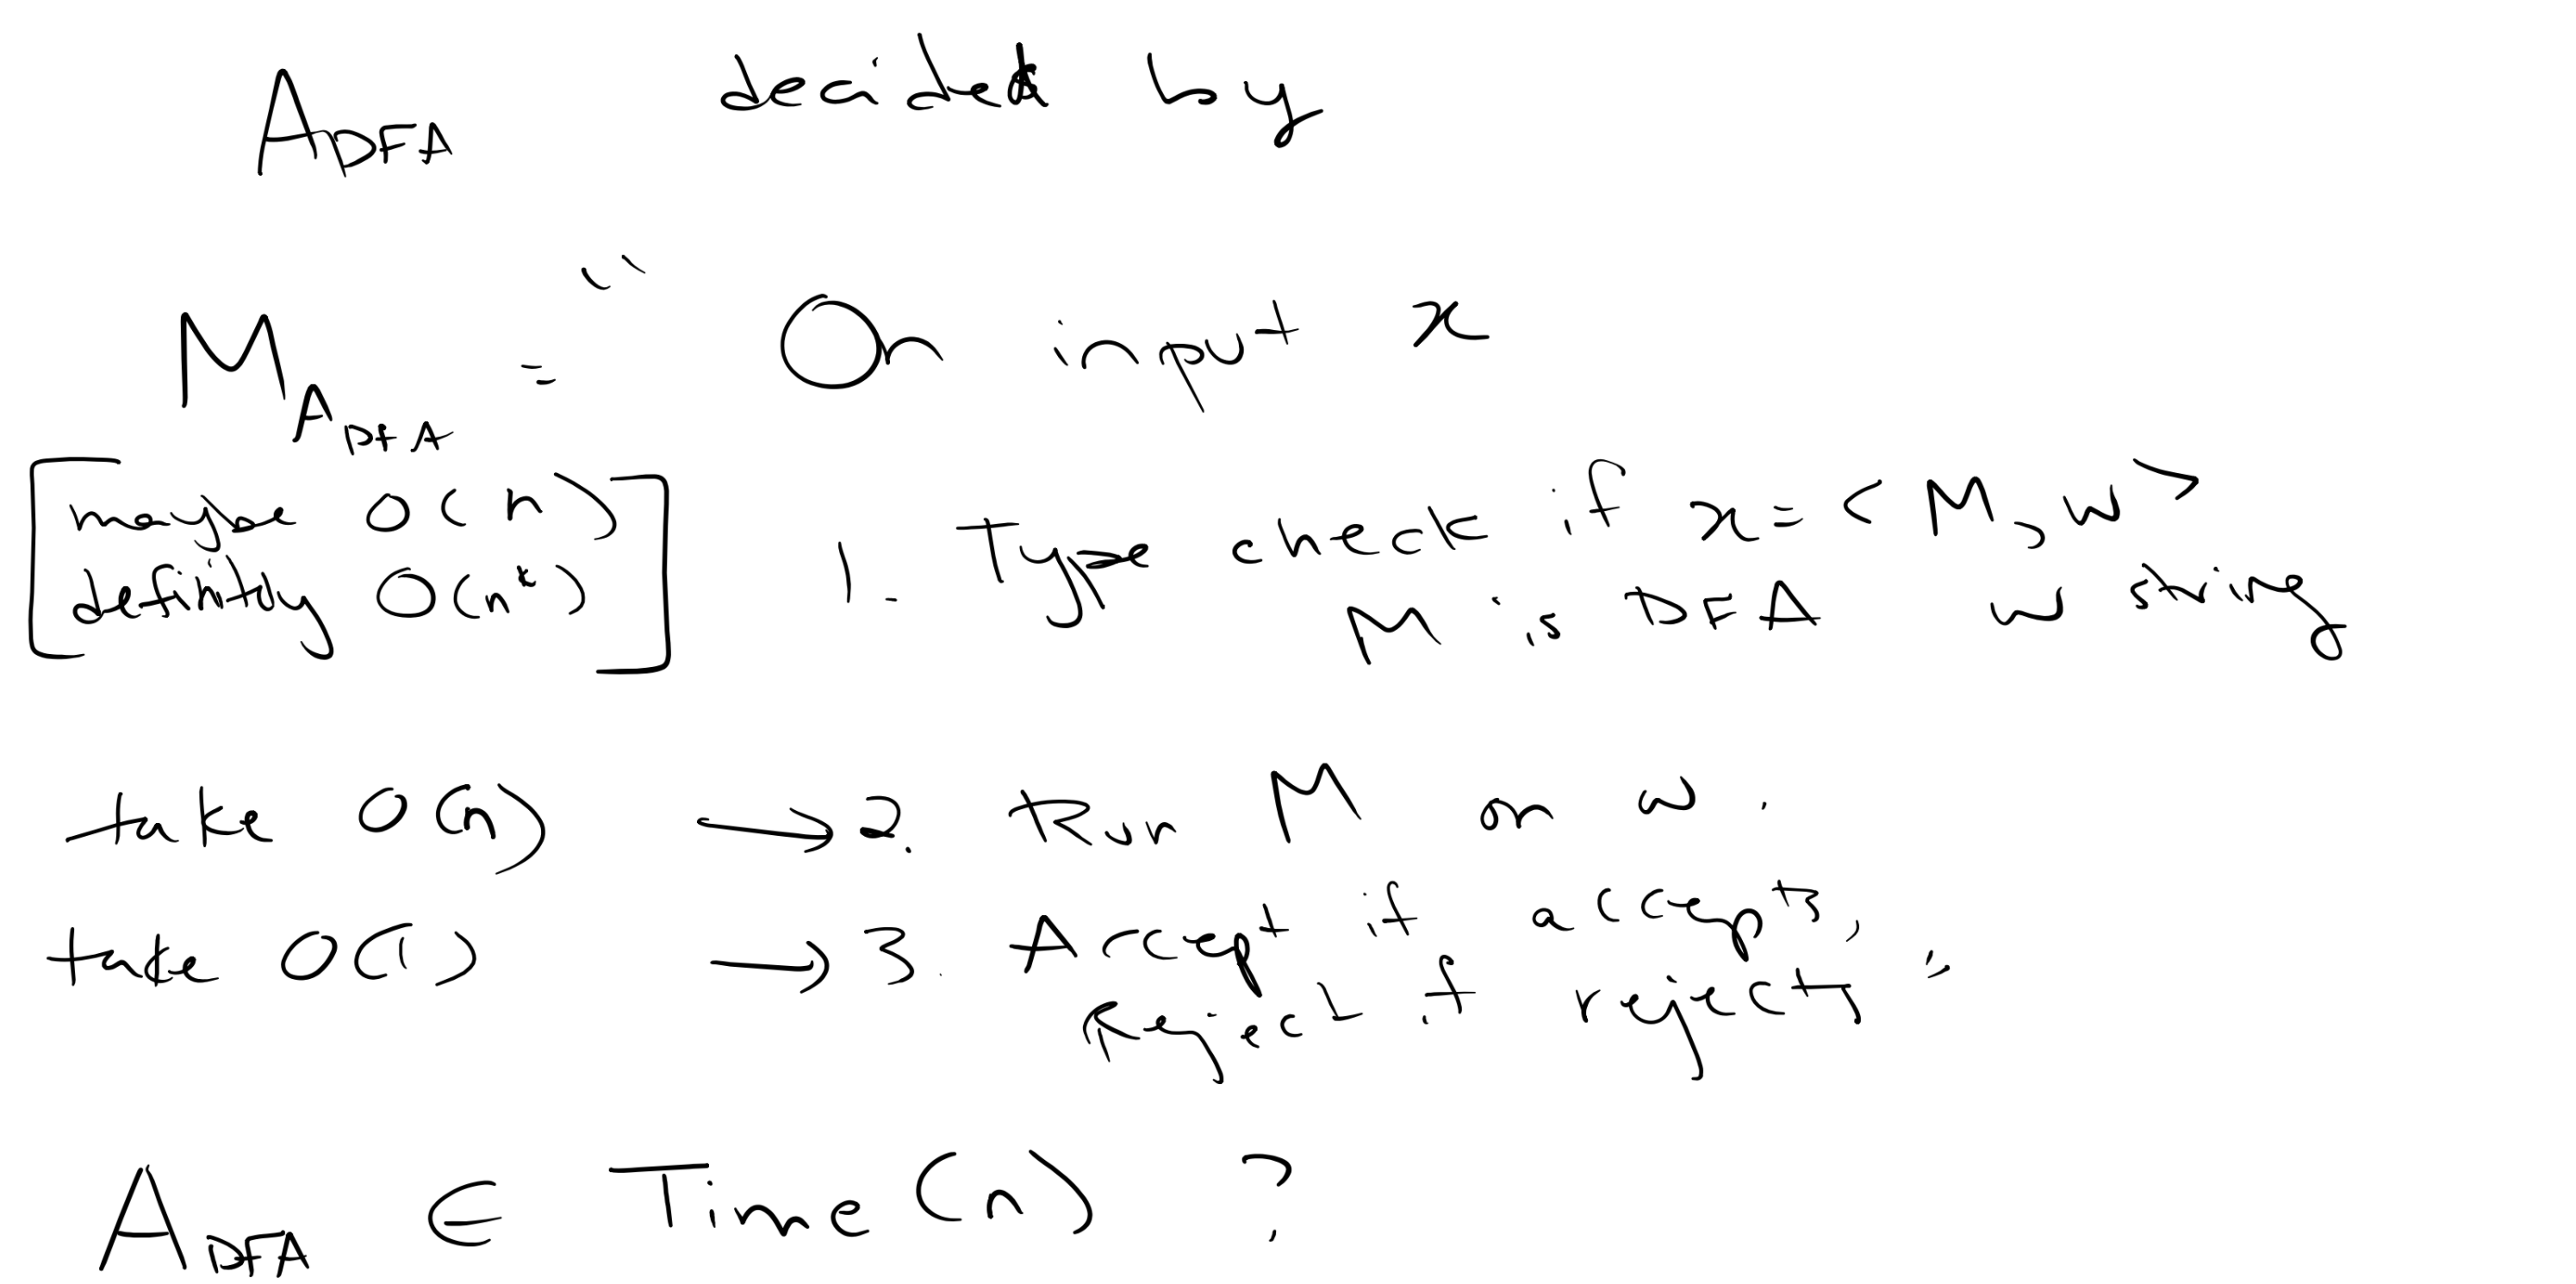 A_DFA decided by
M_A_DFA = " On input x
[maybe O(n)
definitely O(n^k)]
1. Type check if x = <M, w>
M is DFA w string
take O(n) → 2. Run M on w.
take O(1) → 3. Accept if accepts,
Reject if rejects "
A_DFA ∈ Time(n) ?